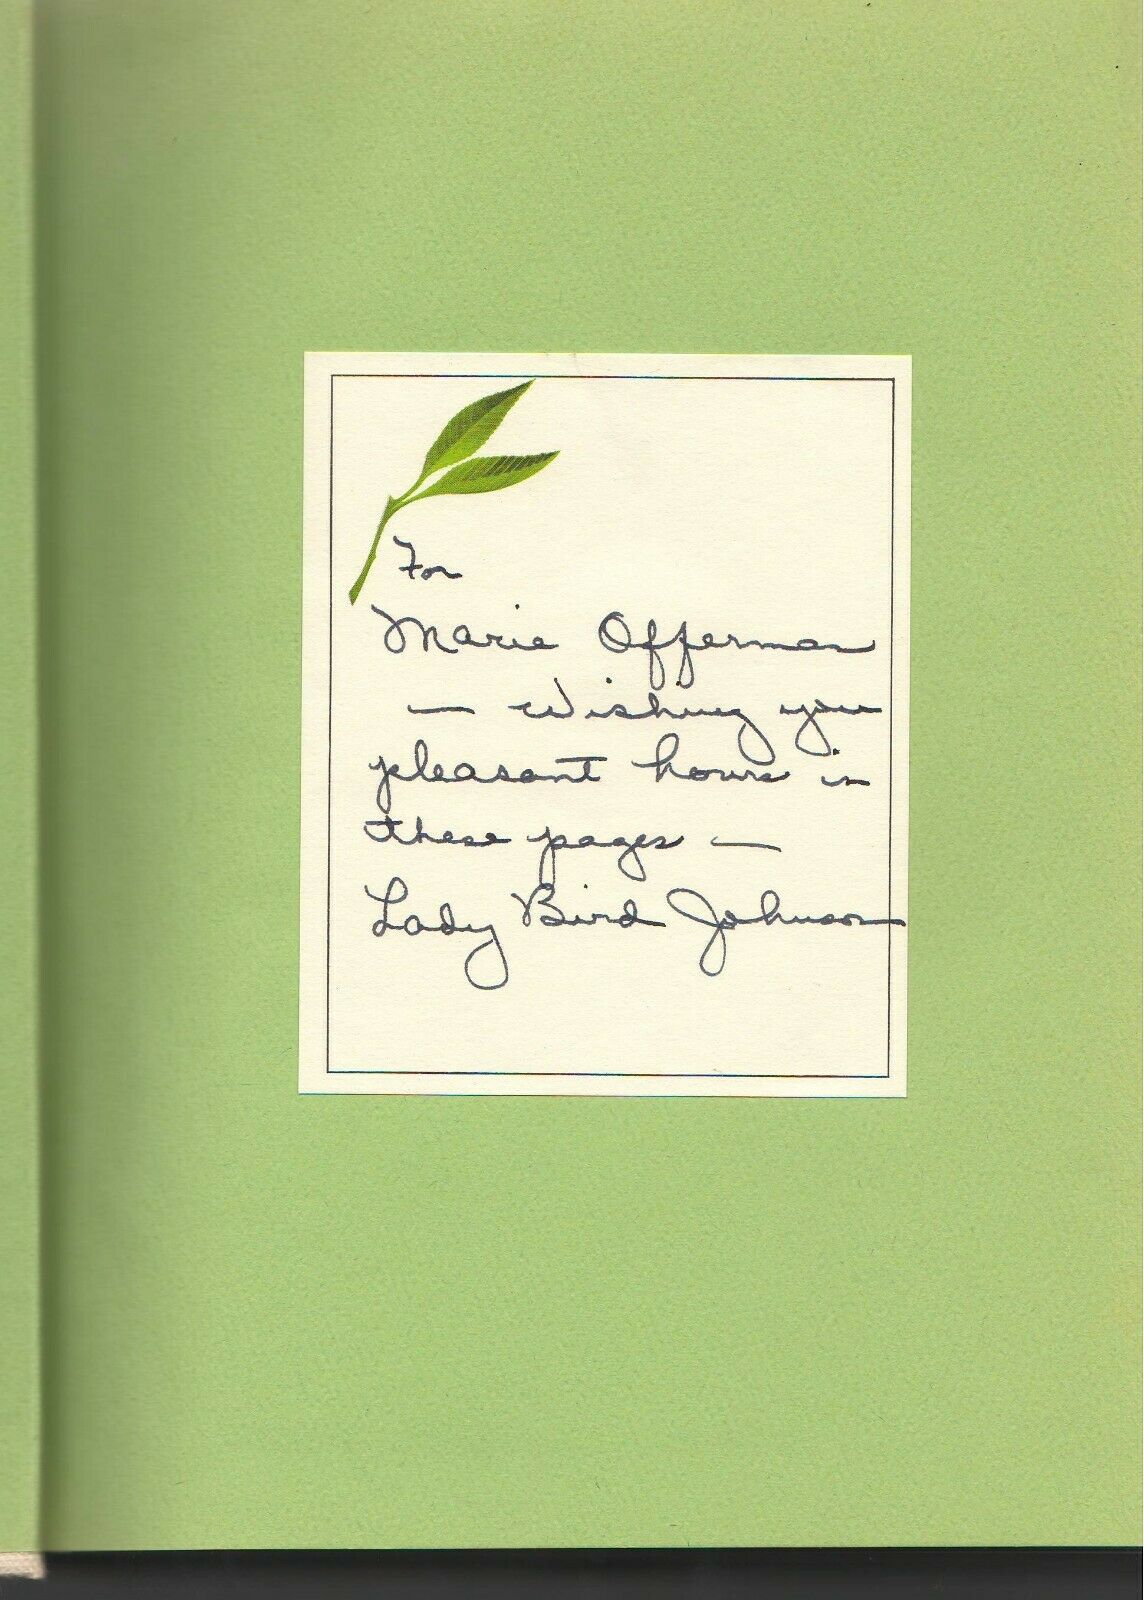 For
Marie Offerman
— Wishing you
pleasant hours in
these pages —
Lady Bird Johnson